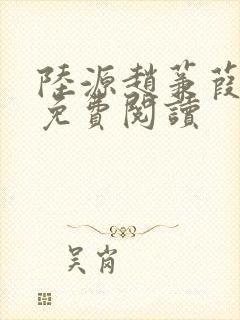 陸源趙蒹葭
免費閱讀
吴肖